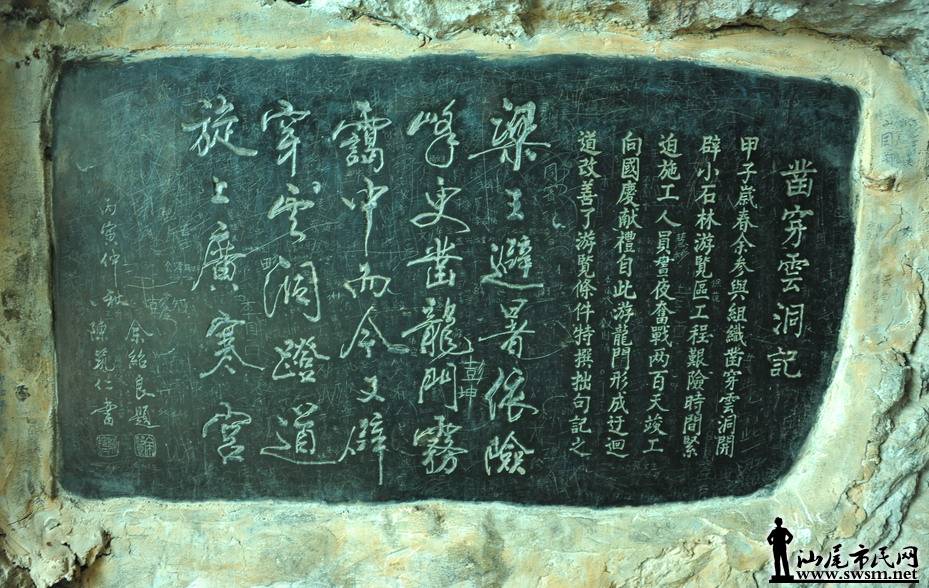 凿穿雲洞記
甲子嵗春余参與組織凿穿雲洞開
辟小石林游覧區工程艱險時間緊
迫施工人員晝夜奮戰两百天竣工
向國慶献禮自此游龍門形成迂迴
道改善了游覧條件特撰拙句記之
梁王避暑依險
峰史凿龍門霧
靄中而今又辟
穿雲洞蹬道
旋上廣寒宫
余紹良題
丙寅仲秋
書
彭坤
汕尾市民网
www.swsm.net